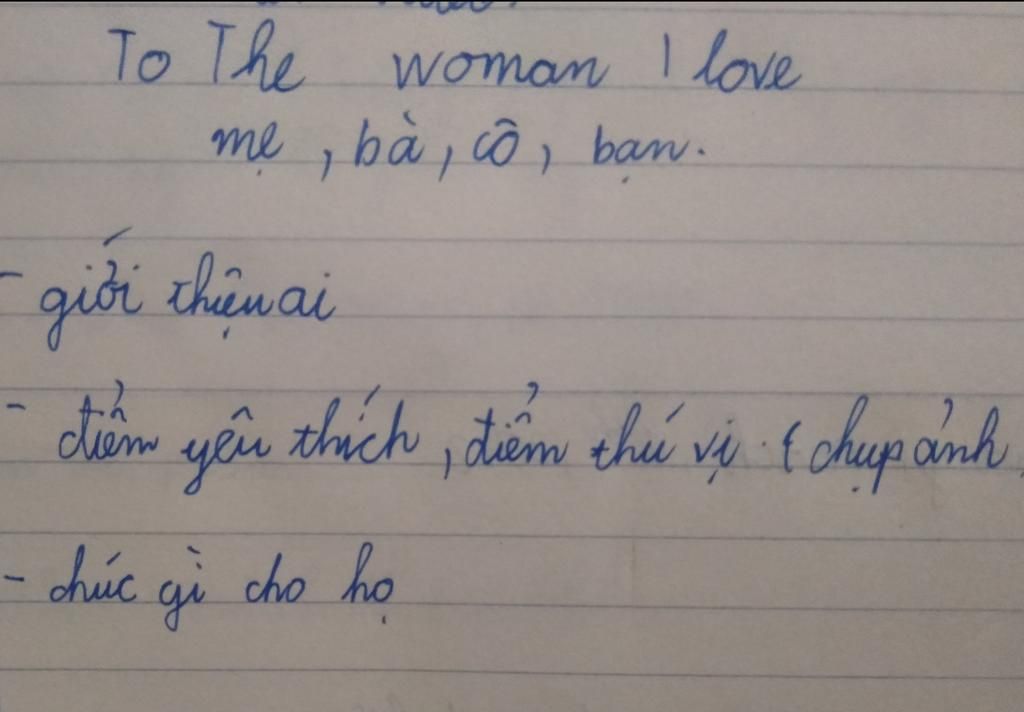 To The woman I love
mẹ, bà, cô, bạn.
- giới thiệu ai
- điểm yêu thích, điểm thú vị. (chụp ảnh
- chúc gì cho họ